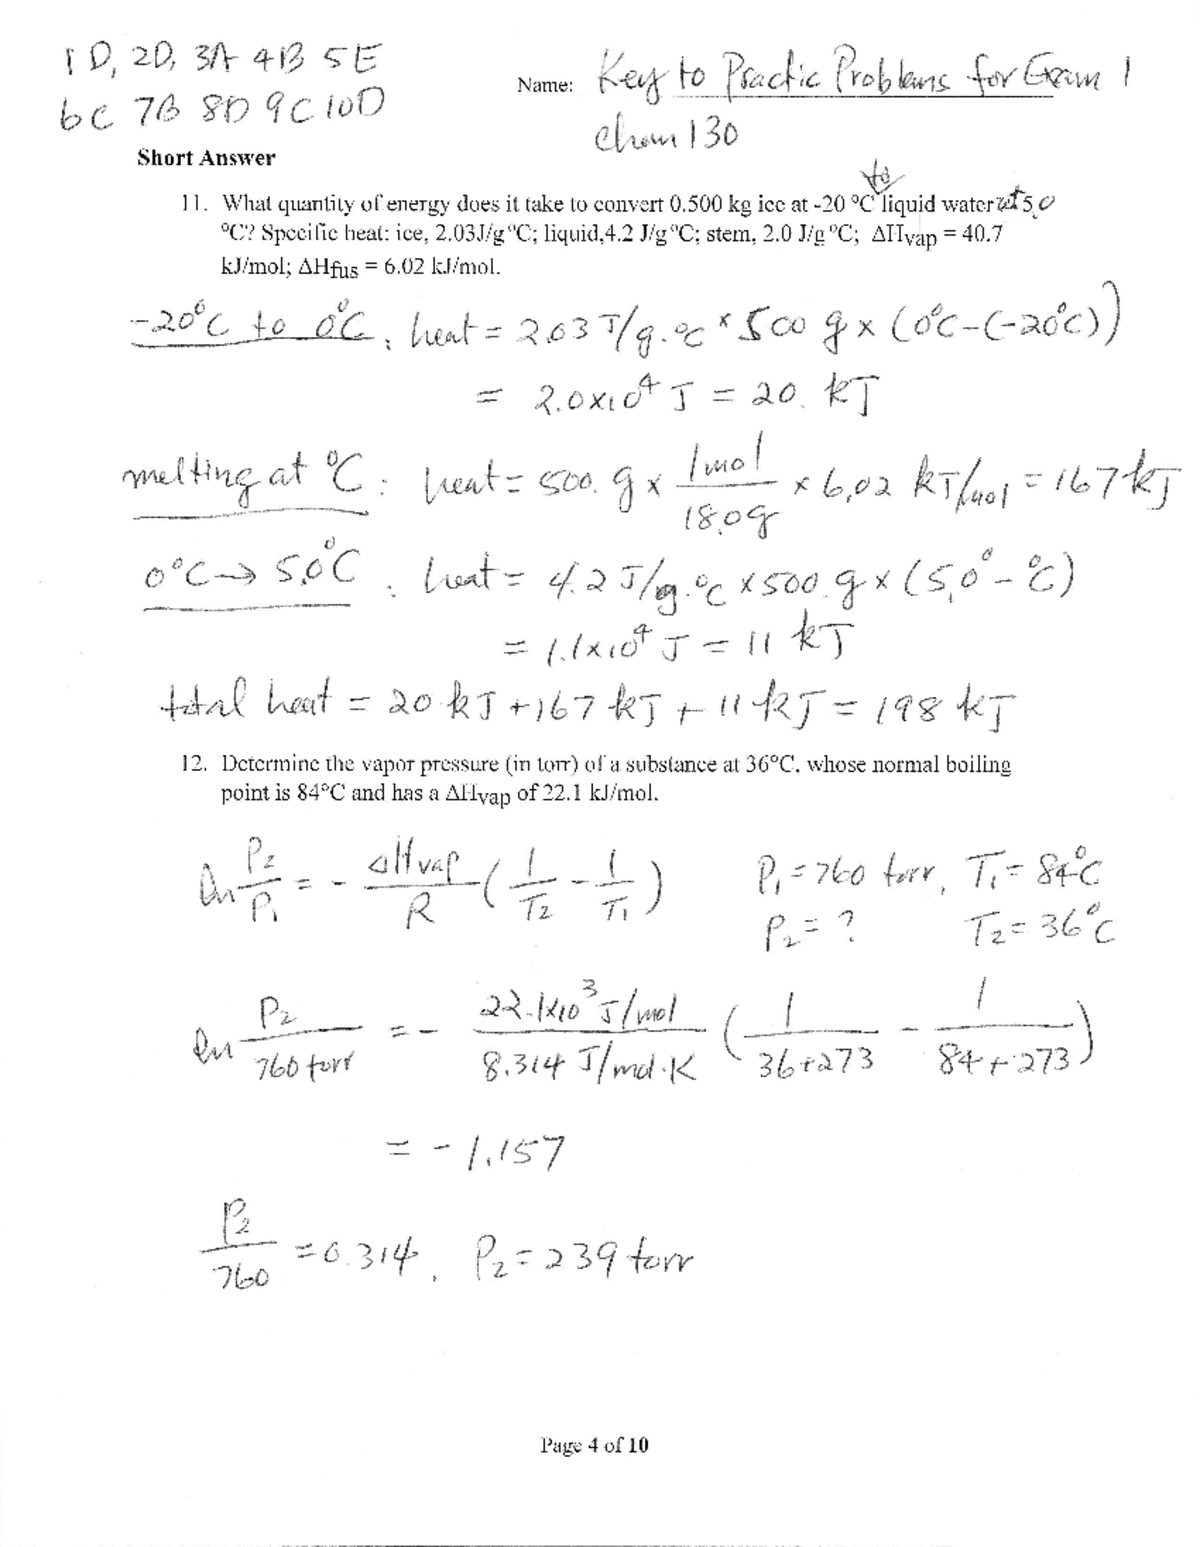 1D, 2D, 3A 4B 5E
6C 7B 8D 9C 10D
Name: Key to Practic Problems for Exam 1
Chem 130
Short Answer
to
11. What quantity of energy does it take to convert 0.500 kg ice at -20 ºC liquid water at 5.0
ºC? Specific heat: ice, 2.03J/g ºC; liquid,4.2 J/g ºC; stem, 2.0 J/g ºC; ΔHvap = 40.7
kJ/mol; ΔHfus = 6.02 kJ/mol.
-20°C to 0°C: heat = 2.03 J/g.°C × 500 g × (0°C-(-20°C))
= 2.0×10⁴ J = 20. kJ
melting at °C: heat = 500. g × 1mol/18.0g × 6.02 kJ/mol = 167 kJ
0°C → 5.0°C: heat = 4.2 J/g.°C × 500. g × (5.0° - °C)
= 1.1×10⁴ J = 11 kJ
total heat = 20 kJ + 167 kJ + 11 kJ = 198 kJ
12. Determine the vapor pressure (in torr) of a substance at 36°C, whose normal boiling
point is 84°C and has a ΔHvap of 22.1 kJ/mol.
ln P₂/P₁ = - ΔHvap/R (1/T₂ - 1/T₁) P₁ = 760 torr, T₁ = 84°C
P₂ = ? T₂ = 36°C
ln P₂/760 torr = - 22.1×10³ J/mol / 8.314 J/mol·K (1/36+273 - 1/84+273)
= -1.157
P₂/760 = 0.314, P₂ = 239 torr
Page 4 of 10